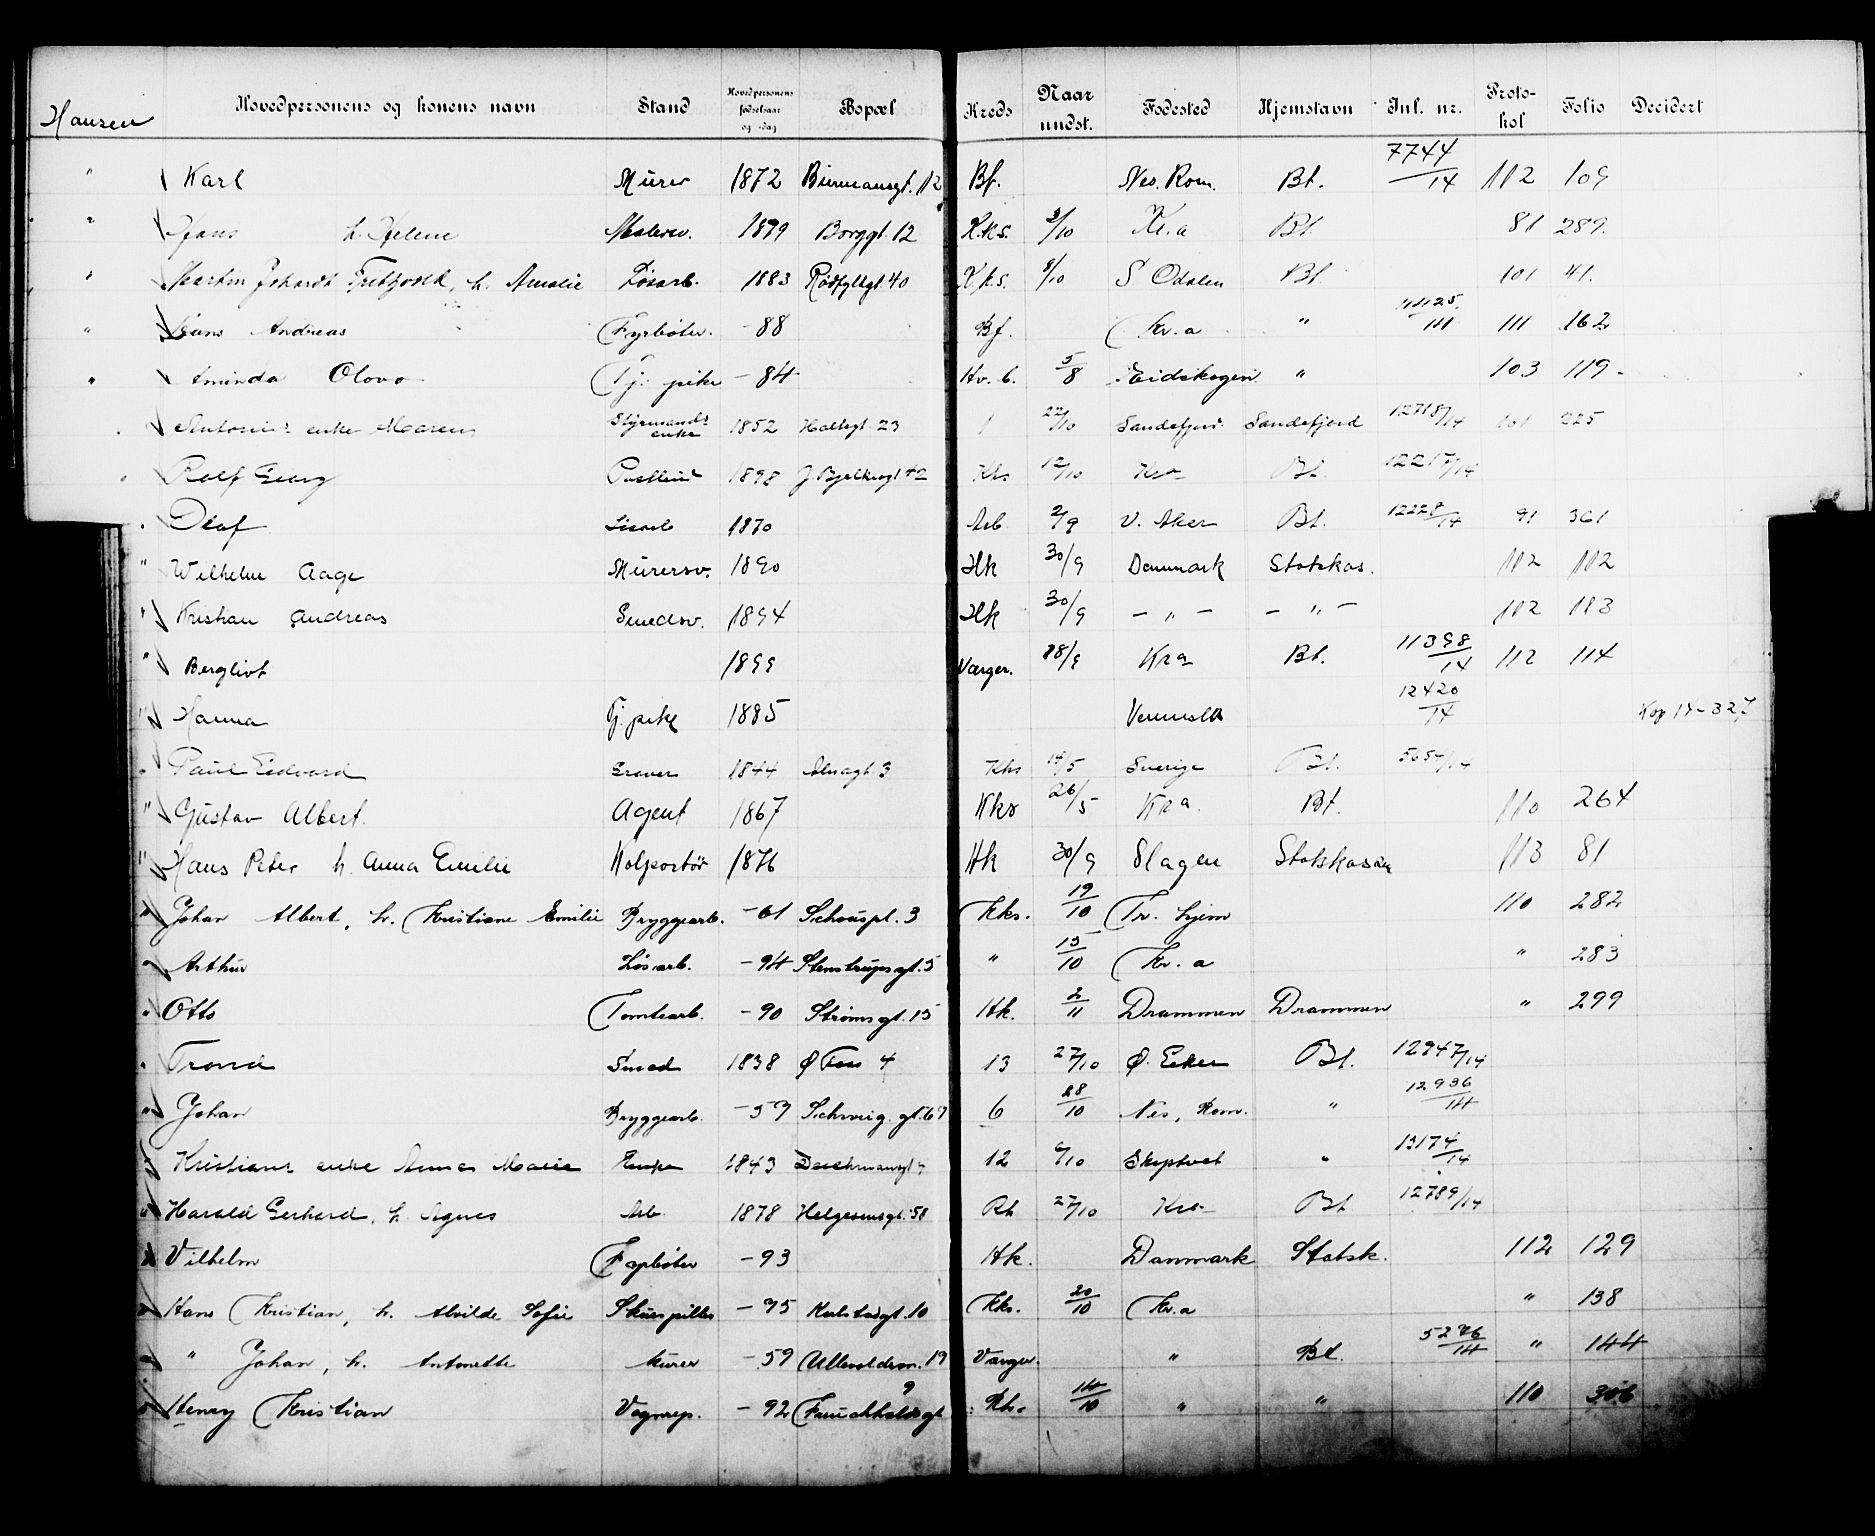 Hansen Hovedpersonens og konens navn Stand Hovedpersonens fødselsaar og -dag Bopæl Kreds Naar undst. Fødested Hjemstavn Inl. nr. Protokol Folio Decidert
" Karl Murer 1872 Biermansgt. 12 Bf. Nes. Rom. Bt. 7744/14 112 109
" Hans h. Helene Malersv. 1879 Borggt. 12 K.k.s. /10 Kr.a Bt. 81 289.
" Martin h. Amalie Løsarb. 1883 Rødfyllgt. 40 K.k.s. /10 S Odalen Bt. 101 41.
" Hans Andreas Fyrbøter. -88 Bf. Kr.a " 111 162
" Aminda Olava Tj. pike -84 Hv. b. 5/8 Eidskogen " 103 119
" enke Maren Styrmands enke 1852 Holtegt. 23 1 22/10 Sandefjord Sandefjord 12718/14 101 225
" Rolf Georg 1898 J Bjelkesgt 42 Kks 12/10 Kra Bt. 12217/14
" Olaf Løsarb 1870 Arb. 2/9 V. Aker Bt. 12228/14 91 361
" Wilhelm Aage Murersv. 1890 Hk 30/9 Danmark Statskas. 112 112
" Kristian Andreas Smedsv. 1894 Hk 30/9 - " - - " - 112 113
" Bergliot 1899 Værger. 18/9 Kra Bt. 11398/14 112 114
" Hanna Tj. pike 1885 12420/14 Kop 14-327
" Paul Edvard Graver 1844 Alnagt. 3 Kks 14/5 Sverige Bt. 5654/14
" Gustav Albert. Agent 1867 Kks 26/5 Kra. Bt. 110 264
" Hans Peter h. Anna Emilie Kolportør 1876 Hk 30/9 Slagen Statskassen 113 81
" Johan Albert, h. Kristiane Emilie Bryggearb. -61 Schouspl. 3 Kks. 19/10 Tr. hjem 110 282
" Arthur Løsarb. -94 Stenstrupsgt. 5 " 15/10 Kr.a " 283
" Otto Tomtearb. -90 Strømsgt. 15 Hk. 2/11 Drammen Drammen " 299
" Trond Smed 1838 Ø Foss 4 13 27/10 Ø. Eker Bt. 12947/14
" Johan Bryggearb. -57 Schweig. gt. 67 6 28/10 Nes, Rom. " 12936/14
" Kristians enke Anna Marie Enke 1843 Deichmansgt 12 /10 Skiptvet " 13174/14
" Harald Gerhard, h. Agnes Arb. 1878 Helgesensgt. 58 Rh 27/10 Kra Bt 12789/14
" Vilhelm Fyrbøter -93 Hk. Danmark Statsk. 112 129
" Hans Kristian, h. Alvilde Sofie Skuespiller -75 Kks. 20/10 Kr.a " 138
" " Johan, h. Antonette Murer -59 Ullevoldsv. 19 Værger. " Bt. 5276/14 " 144
" Henry Kristian Vognrep. -92 9 Rh. 14/10 " " 110 306